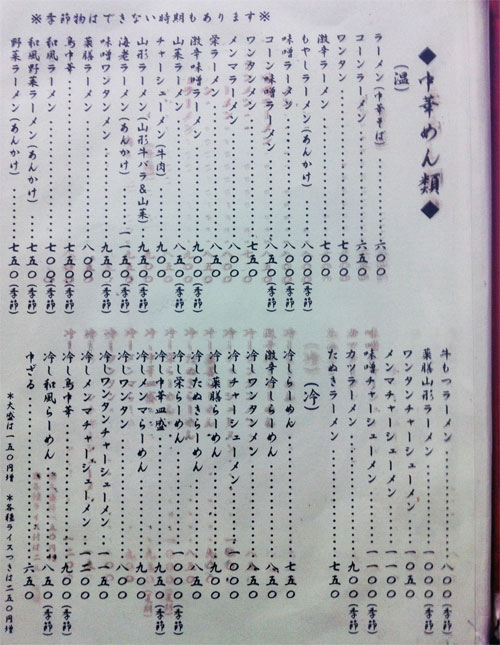 ◆中華めん類◆
(温)
ラーメン(中華そば)……六〇〇
コーンラーメン……六五〇
ワンタン……七〇〇
激辛ラーメン……七〇〇
もやしラーメン(あんかけ)……八〇〇(季節)
味噌ラーメン……八〇〇(季節)
コーン味噌ラーメン……八五〇(季節)
ワンタンメン……七五〇
メンマラーメン……八〇〇
栄ラーメン……八五〇
激辛味噌ラーメン……九〇〇(季節)
山菜ラーメン……八五〇(季節)
チャーシューメン(牛肉)……九〇〇
山形ラーメン(山形牛バラ&山菜)……九五〇(季節)
海老ラーメン(あんかけ)……一一五〇(季節)
味噌ワンタンメン……九五〇(季節)
薬膳ラーメン……八〇〇
鳥中華……七五〇(季節)
和風ラーメン……七〇〇(季節)
和風野菜ラーメン(あんかけ)……七五〇(季節)
野菜ラーメン(あんかけ)……七五〇(季節)
※季節物はできない時期もあります※
牛もつラーメン……八〇〇(季節)
薬膳山形ラーメン……一〇〇〇(季節)
ワンタンチャーシューメン……一〇五〇
メンマチャーシューメン……一一〇〇
味噌チャーシューメン……一一〇〇(季節)
カツラーメン……九〇〇(季節)
たぬきラーメン……七五〇
(冷)
冷しらーめん……七五〇
激辛冷しらーめん……八五〇
冷しワンタンメン……八五〇
冷しチャーシューメン……一〇〇〇
冷し薬膳らーめん……九〇〇
冷したぬきらーめん……八五〇
冷し栄らーめん……一〇〇〇(季節)
冷し中華皿盛……九五〇(季節)
冷しメンマらーめん……九〇〇
冷しワンタン……八〇〇
冷しワンタンチャーシューメン……一一五〇
冷しメンマチャーシューメン……一二〇〇
冷し鳥中華……九〇〇(季節)
冷し和風らーめん……八五〇(季節)
中ざる……六五〇
*大盛は一五〇円増 *各種ライスつきは二五〇円増